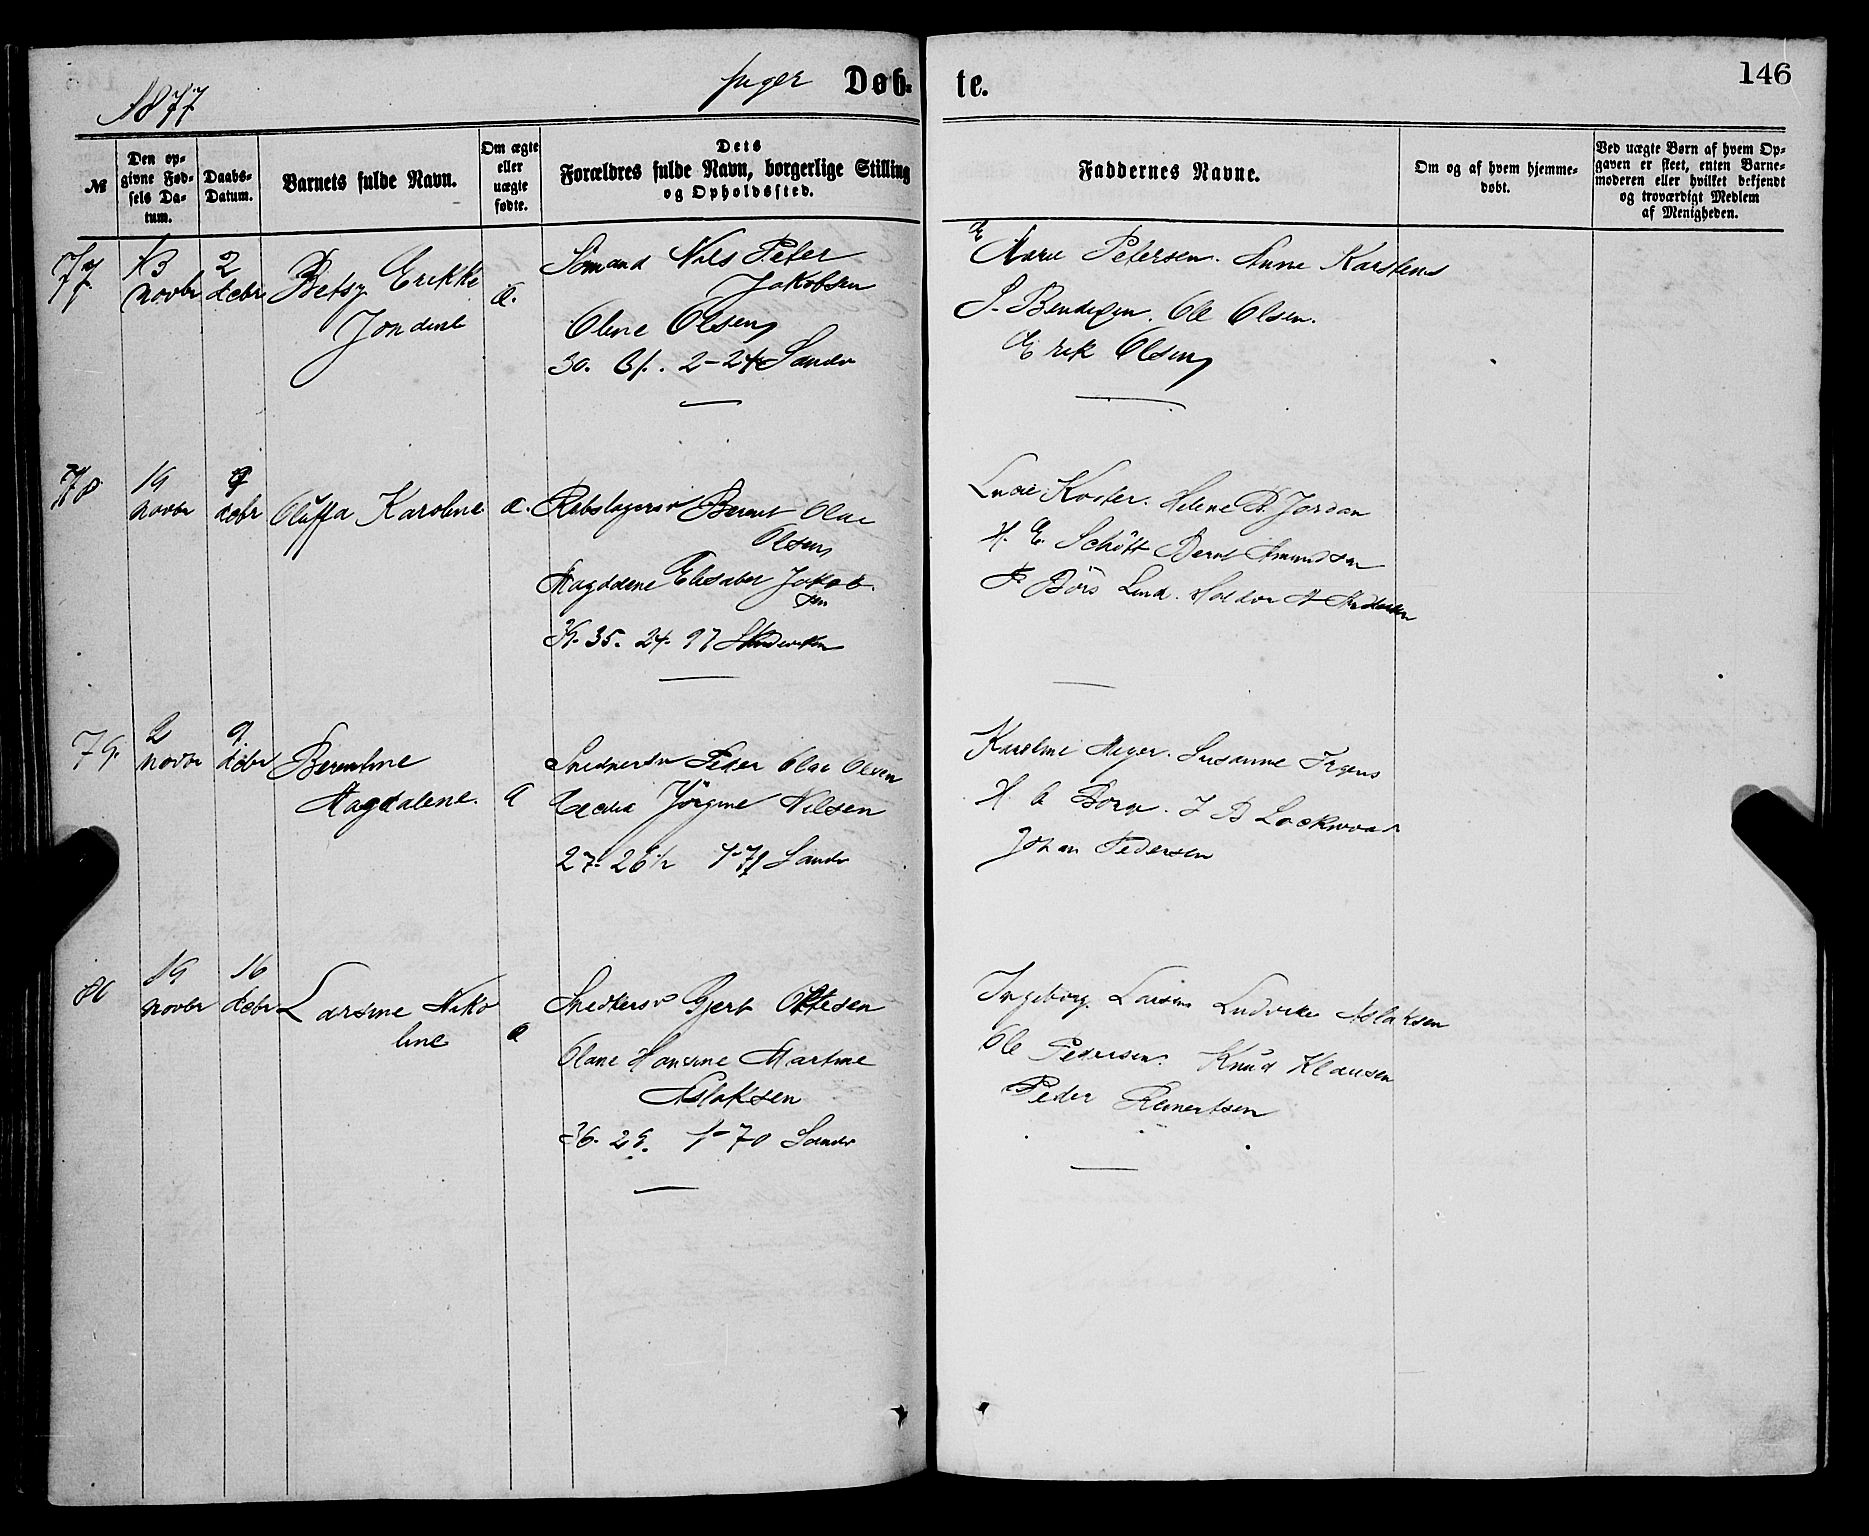 1877
piger Døb- te.
146
№
Den op-
givne Fød-
sels Da-
tum.
Daabs-
Datum.
Barnets fulde Navn.
Om ægte
eller
uægte
fødte.
Dets
Forældres fulde Navn, borgerlige Stilling
og Opholdssted.
Faddernes Navne.
Om og af hvem hjemme-
døbt.
Ved uægte Børn af hvem Op-
gaven er skeet, enten Barne-
moderen eller hvilket bekjendt
og troværdigt Medlem
af Menigheden.
77
13
novbr
2
decbr
Betsy Erikke
Jondine
æ.
Sömand Nils Peter
Jakobsen
Oline Olsen
30. 31. 2-24 Sandv
Marie Petersen. Anne Karstens
S. Bendixen. Ole Olsen.
Erik Olsen
78
19
novbr
9
decbr
Oluffa Karoline
æ.
Rebslagersv Berent Olai
Olsen
Magdalene Elisabet Jakob
sen
39. 35. 24. 97 Sandviken
Lucie Koster. Helene B. Jordan
H. E. Schött Bernt Amundsen
F Börs Lind. Haldor A Andersen
79.
2
novbr
9
decbr
Berentine
Magdalene.
æ
Snedkersv Peder Olai Olsen
Cecilia Jörgine Nilsen
27. 26½ 1-71 Sandv
Karoline Meyer. Susanne Irgens
H. C Borge. J B Lockwood
Johan Pedersen
80
19
novbr
16
decbr
Larsine Niko
line
æ
Snedkersv Gjert Ottesen
Olane Hansine Martine
Aslaksen
36. 29. 1-70 Sandv
Ingeborg Larsen Ludvikke Aslaksen
Ole Pedersen. Knud Klausen
Peder Reinertsen